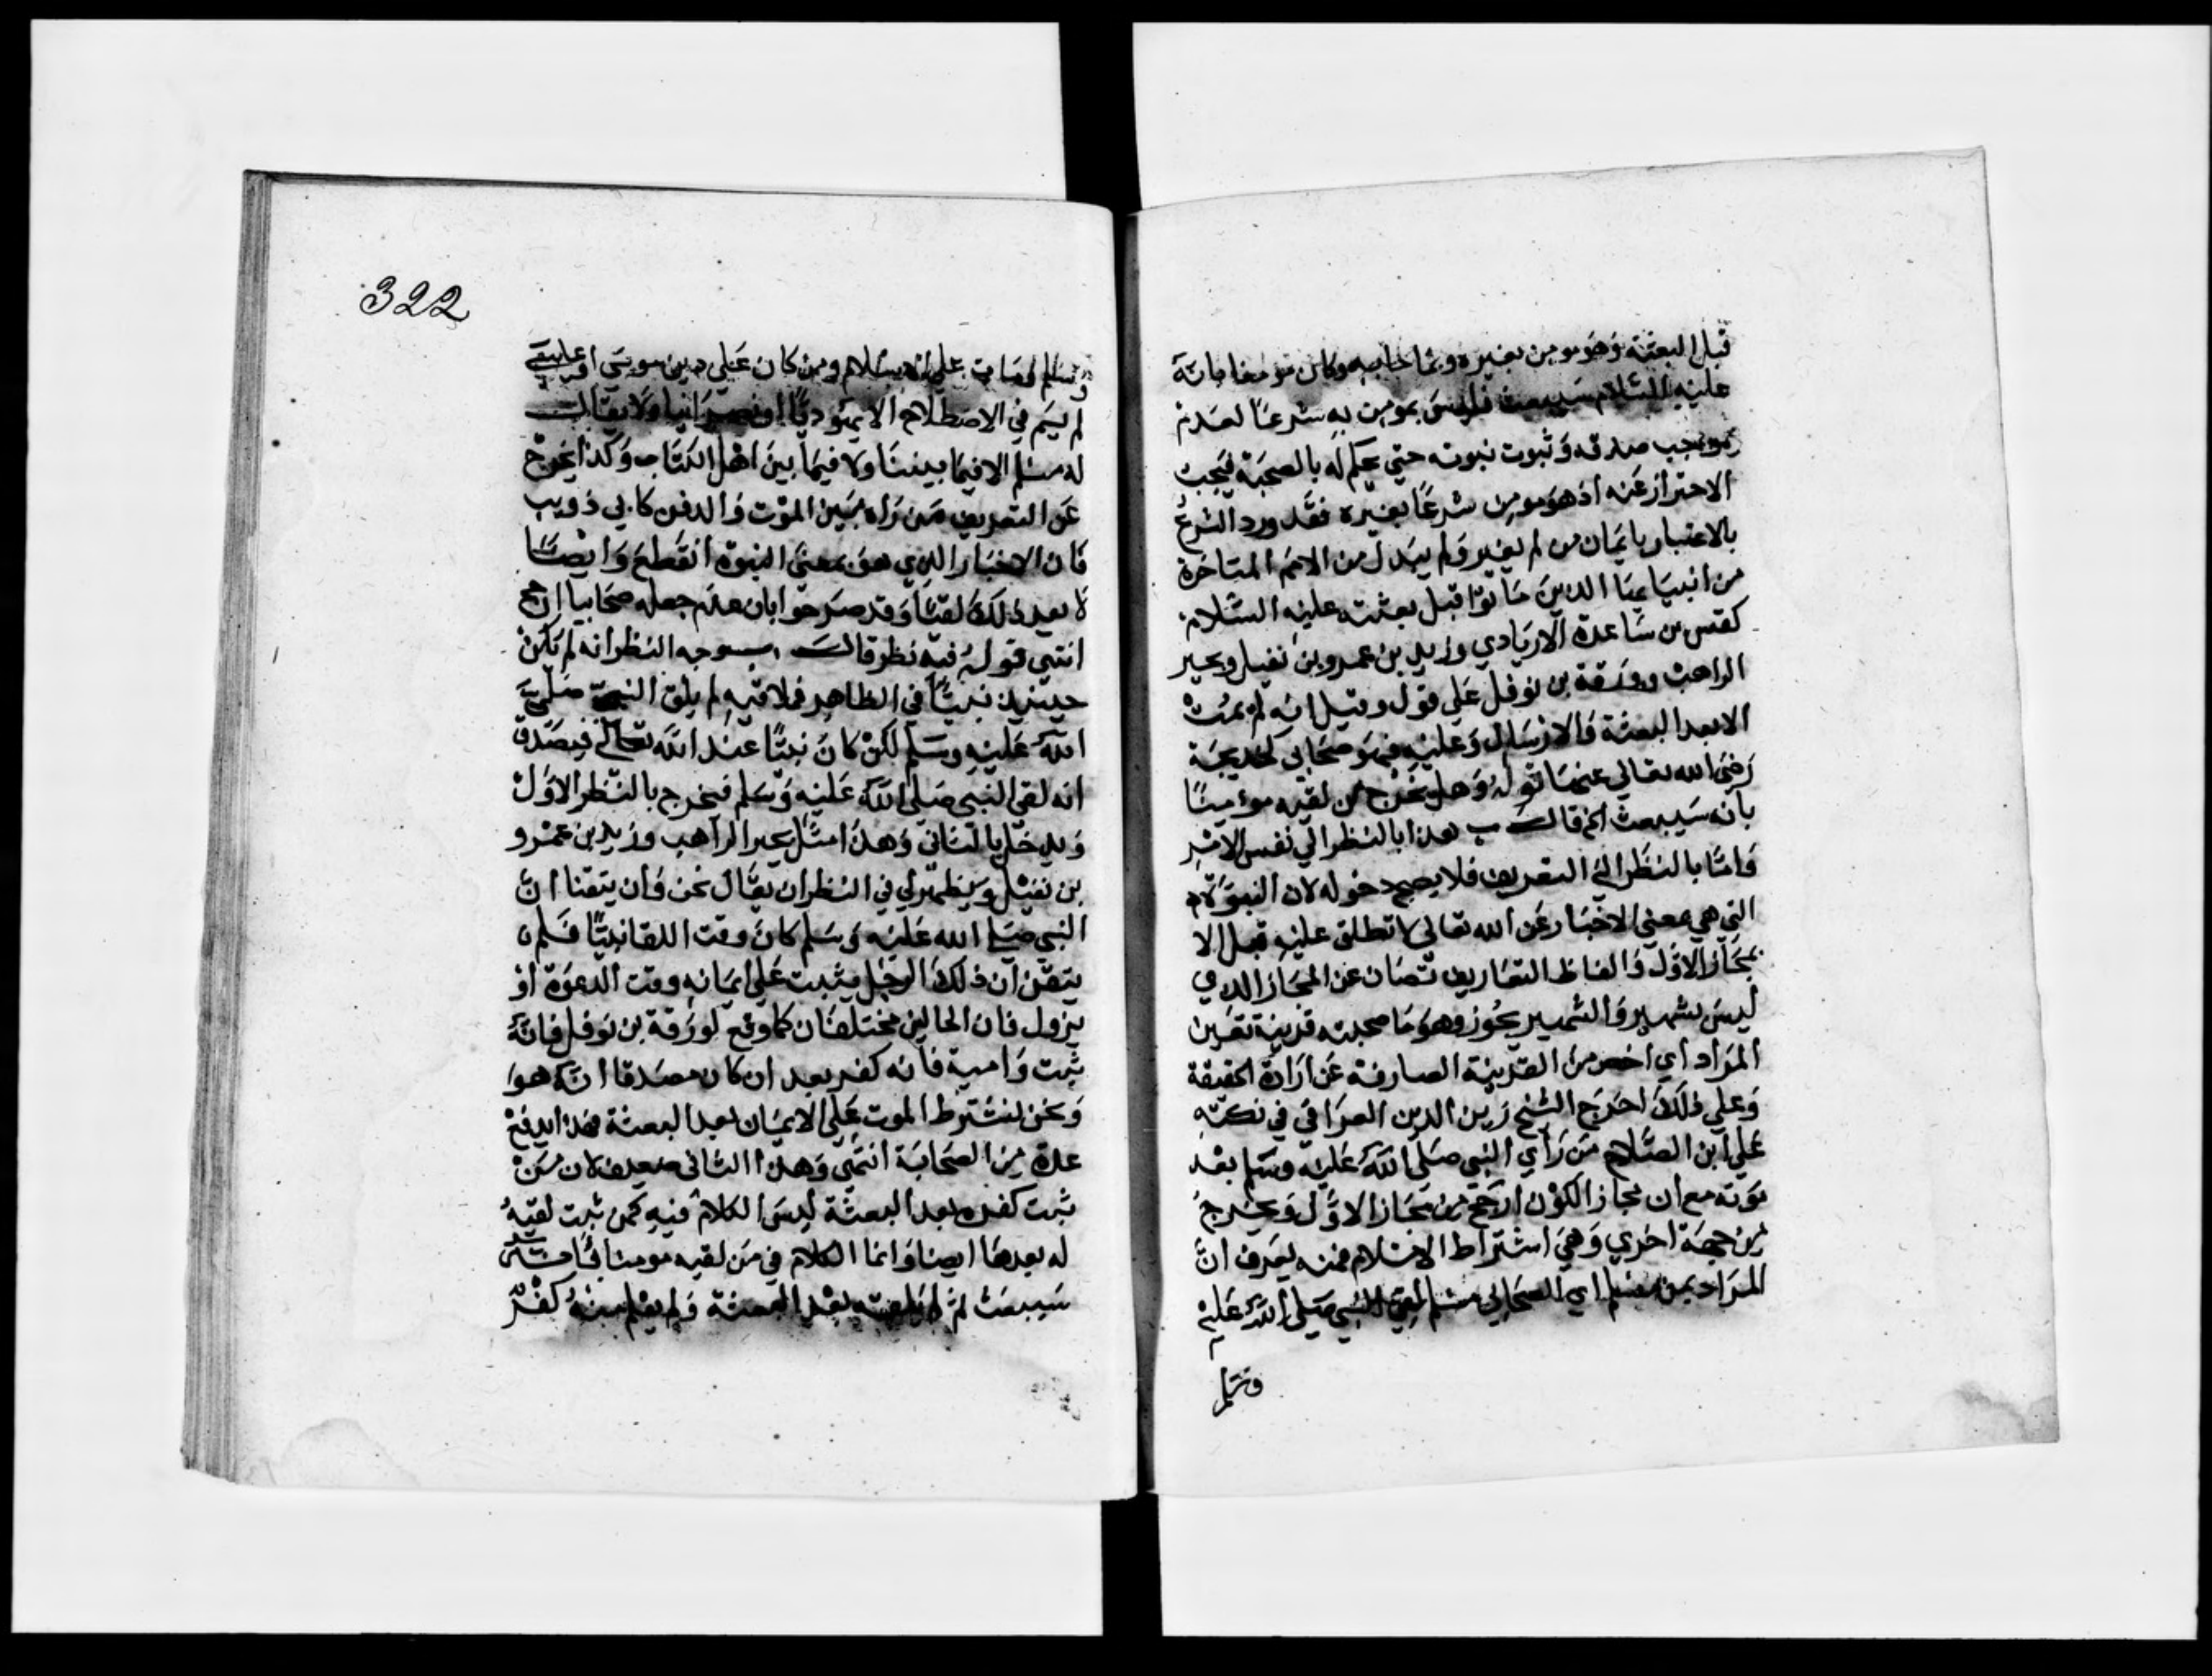 قبل البعثة وهو مومن بغيره وبما جا به وكان مومنا بانه
عليه السلام سيبعث فليس بمومن به شرعا لعدم
موجب صدقه وثبوت نبوته حتي يحكم له بالصحبة فيجب
الاحتراز عنه اذ هو مومن شرعا بغيره فقد ورد الشرع
بالاعتبار بايمان من لم يغير ولم يبدل من الامم المتاخرة
من انبيايها الذين ماتوا قبل بعثته عليه السلام
كقس بن ساعدة الايادي وزيد بن عمرو بن نفيل وبحير
الراهب وورقة بن نوفل علي قول وقيل انه لم يمت
الا بعد البعثة والارسال وعليه فهو صحابي كخديجة
رضي الله تعالي عنها قوله وهل يخرج من لقيه مومنا
بانه سيبعث الخ قالـــ ب هذا بالنظر الي نفس الامر
واما بالنظر الي التعريف فلا يصح دخوله لان النبوة
التي هي بمعني الاخبار عن الله تعالي لا تطلق عليه قبل الا
بمجاز الاول والفاظ التعاريف تصان عن المجاز الذي
ليس بشهير والشهير يجوز وهو ما صحبته قرينة تعين
المراد اي اخص من القرينة الصارفة عن ارادة الحقيقة
وعلي ذلك اخرج الشيخ زين الدين العراقي في نكته
علي ابن الصلاح من راي النبي صلي الله عليه وسلم بعد
موته مع ان مجاز الكون ارجح من مجاز الاول ويخرج
من جهة اخري وهي اشتراط الاسلام فمنه يعرف ان
المراد بمن مسلم اي الصحابي مسلم لقي النبي صلي الله عليه
وسلم
322
وسلم ومات علي الاسلام ومن كان علي دين موسي او عيسي
لم يسم في الاصطلاح الا يهوديا او نصرانيا ولا يقالـــ
له مسلم الا فيما بيننا ولا فيما بين اهل الكتاب وكذا يخرج
عن التعريف من راه بين الموت والدفن كابي ذويب
فان الاخبار الذي هو بمعني النبوة انقطع وايضا
لا يعد ذلك لقيا وقد صرحوا بان عدم جعله صحابيا ارجح
انتهي قوله فيه نظر قالـــ ب وجه النظر انه لم يكن
حينيذ نبيا في الظاهر فملاقيه لم يلق النبي صلي
الله عليه وسلم لكن كان نبيا عند الله تعالي فيصدق
انه لقي النبي صلي الله عليه وسلم فيخرج بالنظر الاول
ويدخل بالثاني وهذا مثل بحير الراهب وزيد بن عمرو
بن نفيل ويظهر لي في النظر ان يقال نحن وان يتقنا ان
النبي صلي الله عليه وسلم كان وقت اللقا نبيا فلم
يتقن ان ذلك الرجل يثبت علي ايمانه وقت الدعوة او
يزول فان الحالين مختلفان كما وقع لورقة بن نوفل فانه
ثبت وامية فانه كفر بعد ان كان مصدقا انه هو
ونحن نشترط الموت علي الايمان بعد البعثة فهذا يدفع
عدة من الصحابة انتهي وهذا الثاني ضعيف لان من
ثبت كفره بعد البعثة ليس الكلام فيه كمن ثبت لقيه
له بعدها ايضا وانما الكلام في من لقيه مومنا بانه
سيبعث ثم لم يلقه بعد البعثة ولم يعلم منه كفر